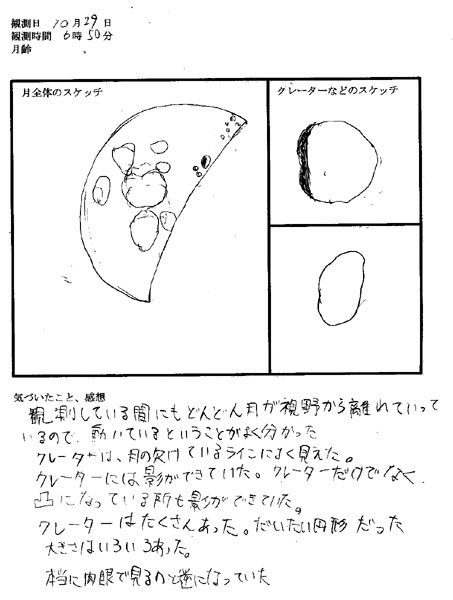 観測日 10月29日
観測時間 6時50分
月齢
月全体のスケッチ
クレーターなどのスケッチ
気づいたこと、感想
観測している間にもどんどん月が視野から離れていって
いるので、動いているということがよく分かった
クレーターは、月の欠けているラインによく見えた。
クレーターには影ができていた。クレーターだけでなく、
凸になっている所も影ができていた。
クレーターはたくさんあった。だいたい円形だった
大きさはいろいろあった。
本当に肉眼で見るのと逆になっていた